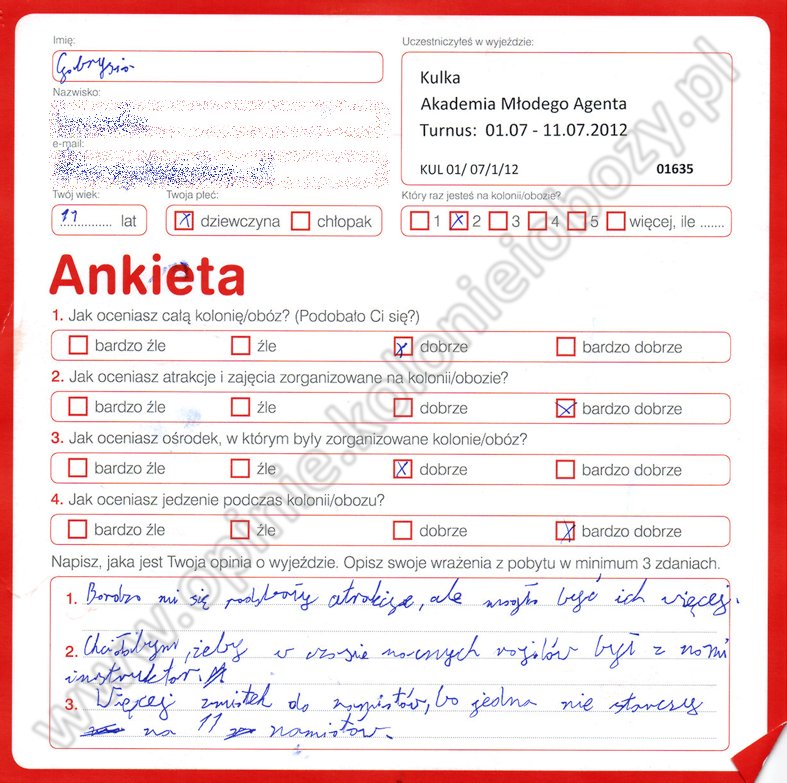 Imię:
Gabrysia
Uczestniczyłeś w wyjeździe:
Kulka
Akademia Młodego Agenta
Turnus: 01.07 - 11.07.2012
KUL 01/ 07/1/12 01635
Nazwisko:
e-mail:
Twój wiek: Twoja płeć: Który raz jesteś na kolonii/obozie?
11 lat X dziewczyna chłopak 1 X 2 3 4 5 więcej, ile .......
Ankieta
1. Jak oceniasz całą kolonię/obóz? (Podobało Ci się?)
bardzo źle źle X dobrze bardzo dobrze
2. Jak oceniasz atrakcje i zajęcia zorganizowane na kolonii/obozie?
bardzo źle źle dobrze X bardzo dobrze
3. Jak oceniasz ośrodek, w którym były zorganizowane kolonie/obóz?
bardzo źle źle X dobrze bardzo dobrze
4. Jak oceniasz jedzenie podczas kolonii/obozu?
bardzo źle źle dobrze X bardzo dobrze
Napisz, jaka jest Twoja opinia o wyjeździe. Opisz swoje wrażenia z pobytu w minimum 3 zdaniach.
1. Bardzo mi się podobały atrakcje, ale mogło być ich więcej.
2. Chciałabym, żeby w czasie nocnych był z nami
instruktor.
3. Więcej zmiotek do namiotów, bo jedna nie starczy
na 11 namiotów.
www.opinie.kolonieiobozy.pl